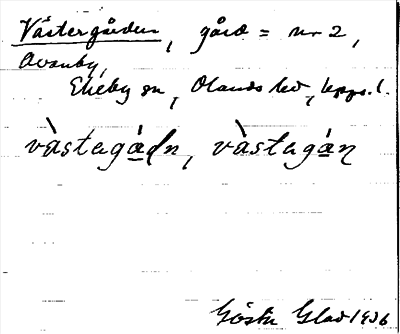 Västergården, gård = nr 2,
Avanby,
Ekeby sn, Olands hd, Upps. l.
vàstagá̱dn, vàstagá̱ṇ
Gösta Glad 1936